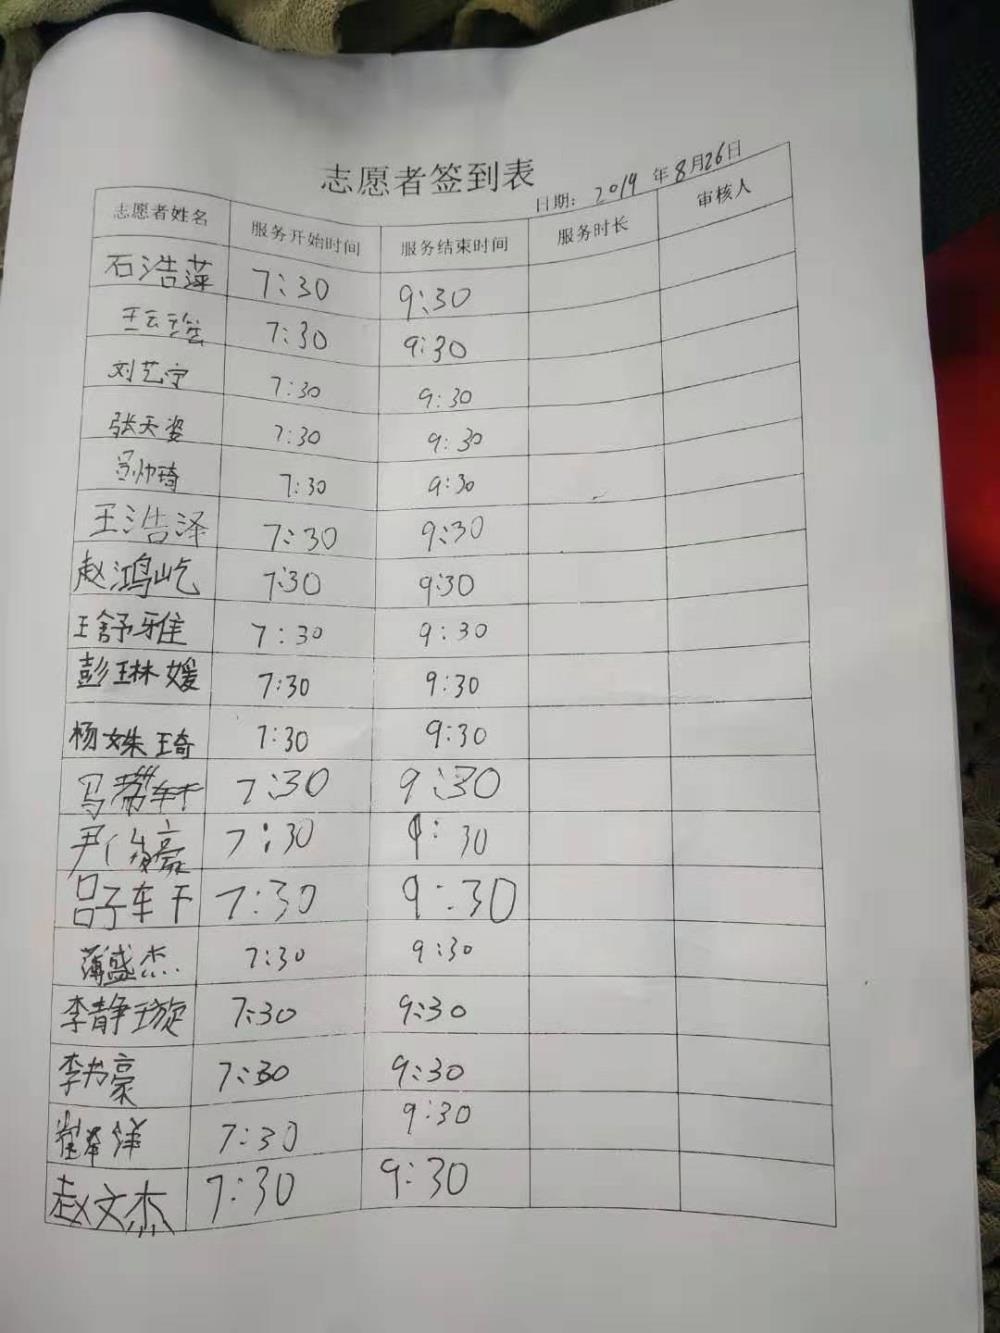 志愿者签到表
日期: 2019 年8月26日
志愿者姓名 服务开始时间 服务结束时间 服务时长 审核人
石浩萍 7:30 9:30
王云 7:30 9:30
刘艺宁 7:30 9:30
张天姿 7:30 9:30
帅琦 7:30 9:30
王浩泽 7:30 9:30
赵鸿屹 7:30 9:30
王舒雅 7:30 9:30
彭琳媛 7:30 9:30
杨姝琦 7:30 9:30
马 轩 7:30 9:30
尹俊豪 7:30 9:30
吕子轩 7:30 9:30
薄盛杰 7:30 9:30
李静璇 7:30 9:30
李书豪 7:30 9:30
7:30 9:30
赵文杰 7:30 9:30